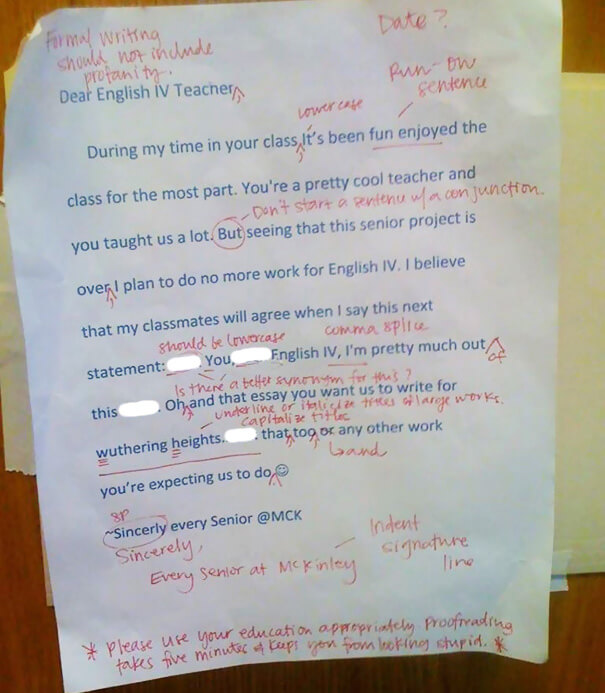 Formal writing
should not include
profanity.
Date?
Dear English IV Teacher
Run-on
sentence
lowercase
During my time in your class It's been fun enjoyed the
class for the most part. You're a pretty cool teacher and
Don't start a sentence w/ a conjunction.
you taught us a lot. But seeing that this senior project is
over I plan to do no more work for English IV. I believe
that my classmates will agree when I say this next
should be lowercase
comma splice
statement: You, English IV, I'm pretty much out
of
Is there a better synonym for this?
this . Oh and that essay you want us to write for
underline or italicize titles of large works.
capitalize titles
wuthering heights. that too or any other work
and
you're expecting us to do ☺
sp
~Sincerly every Senior @MCK
Sincerely,
Every senior at McKinley
Indent
signature
line
* Please use your education appropriately. Proofreading
takes five minutes & keeps you from looking stupid. *